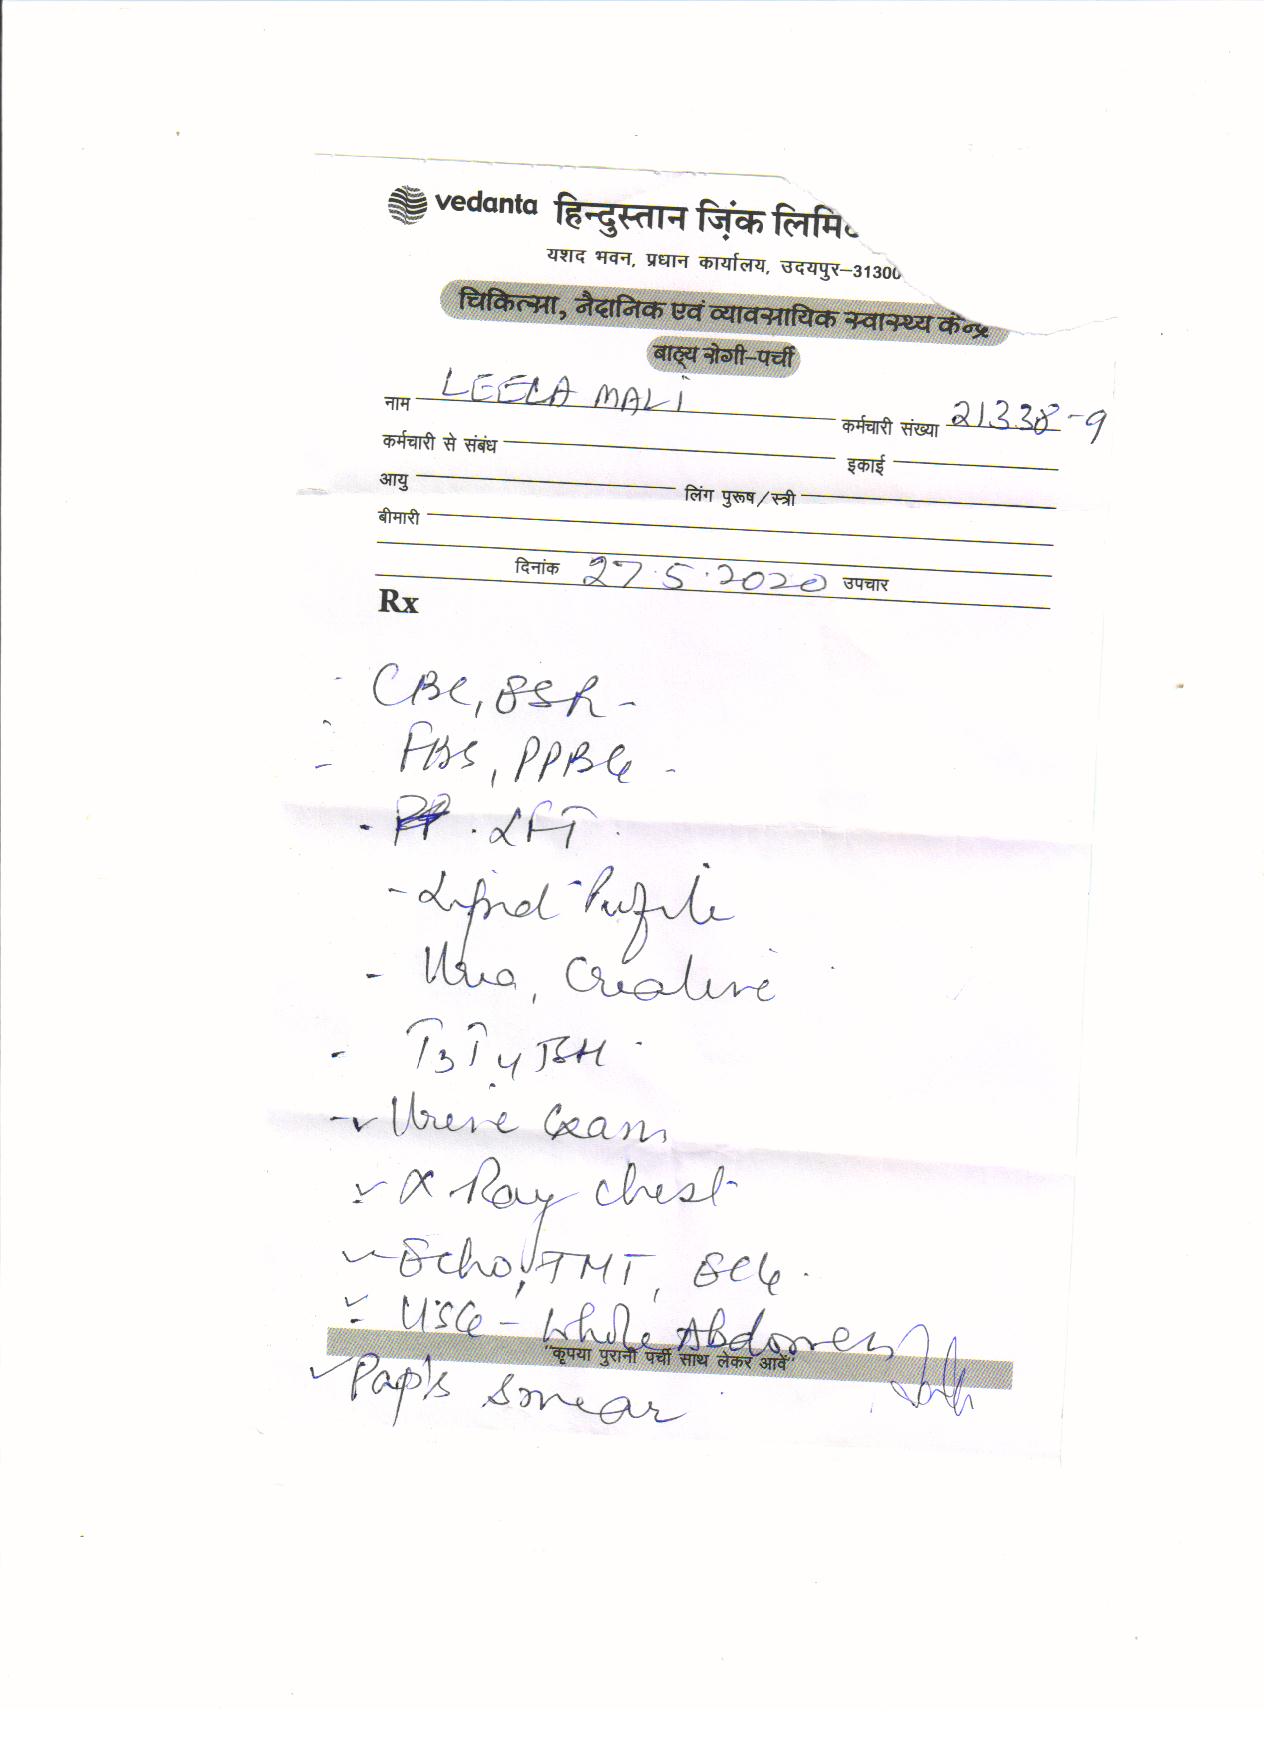 vedanta हिन्दुस्तान ज़िंक लिमि
यशद भवन, प्रधान कार्यालय, उदयपुर–31300
चिकित्सा, नैदानिक एवं व्यावसायिक स्वास्थ्य केन्द्र
बाह्य रोगी-पर्ची
नाम LEELA MALI कर्मचारी संख्या 21338-9
कर्मचारी से संबंध इकाई
आयु लिंग पुरूष/स्त्री
बीमारी
दिनांक 27.5.2020 उपचार
Rx
- CBC, ESR -
- FBS, PPBG -
- LFT
- Lipid Profile
- Urea, Creatine
- T3 T4 TSH
- Urine Exam
X Ray Chest
Echo, TMT, ECG
USG - Whole Abdomen
"कृपया पुरानी पर्ची साथ लेकर आवें"
Pap's Smear